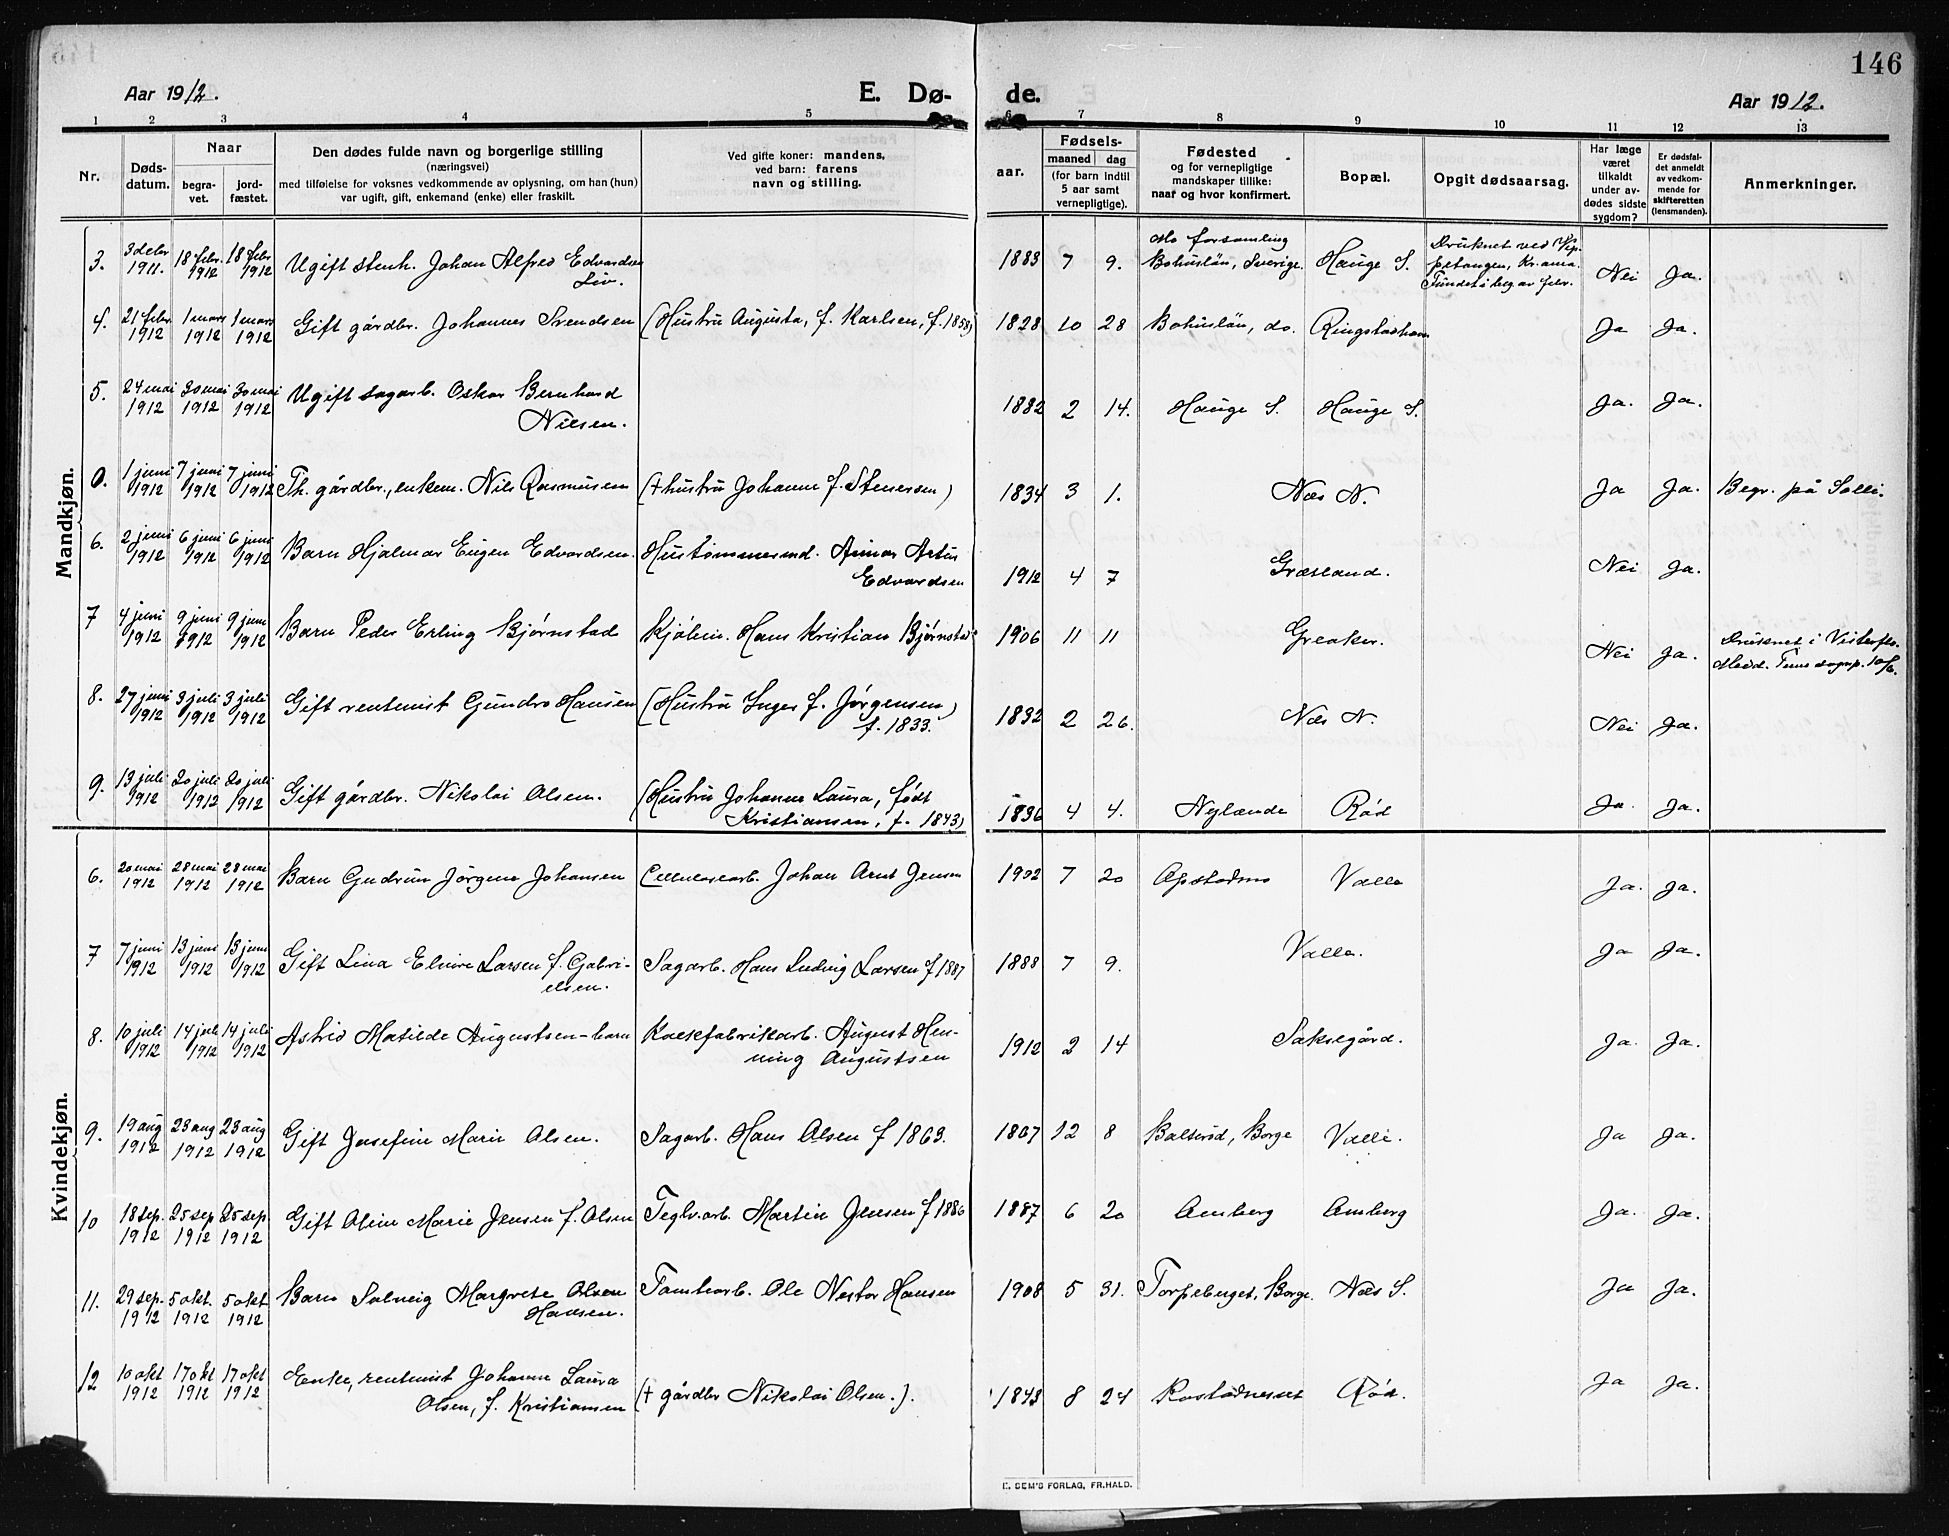 146
Aar 1912.
E. Dø- de.
Aar 1912.
1 2 3 4 5 6 7 8 9 10 11 12 13
Nr.
Døds-
datum.
Naar
begra-
vet.
jord-
fæstet.
Den dødes fulde navn og borgerlige stilling
(næringsvei)
med tilføielse for voksnes vedkommende av oplysning, om han (hun)
var ugift, gift, enkemand (enke) eller fraskilt.
Ved gifte koner: mandens,
ved barn: farens
navn og stilling.
Fødsels-
aar.
maaned dag
(for barn indtil
5 aar samt
vernepligtige).
Fødested
og for vernepligtige
mandskaper tillike:
naar og hvor konfirmert.
Bopæl.
Opgit dødsaarsag.
Har læge
været
tilkaldt
under av-
dødes sidste
sygdom?
Er dødsfal-
det anmeldt
av vedkom-
mende for
skifteretten
(lensmanden).
Anmerkninger.
Mandkjøn.
3. 3 debr 1911. 18 febr. 1912 18 febr 1912 Ugift stenh. Johan Alfred Edvardsen Liv. 1883 7 9. Mo forsamling Bohuslän, Sverige. Hauge S. Druknet ved Vippetangen, Kr.ania. Fundet i beg. av febr. Nei Ja.
4. 21 febr. 1912 1 mars 1912 1 mars 1912 Gift gårdbr. Johannes Svendsen (Hustru Augusta, f. Karlsen, f. 1858) 1828 10 28 Bohuslän, do. Ringstadhavn Ja Ja.
5. 24 mai 1912 30 mai 1912 30 mai 1912 Ugift sagarb. Oskar Bernhard Nilsen. 1882 2 14. Hauge S. Hauge S. Ja. Ja.
0. 1 juni 1912 7 juni 1912 7 juni 1912 Fh. gårdbr., enkem. Nils Rasmusen († hustru Johanne f. Stenersen) 1834 3 1. Næs N. Ja Ja. Begr. på Solli.
6. 2 juni 1912 6 juni 1912 6 juni 1912 Barn Hjalmar Eugen Edvardsen. Hustømmermd. Arnar Artur Edvardsen 1912 4 7 Græsland. Nei Ja.
7 4 juni 1912 9 juni 1912 9 juni 1912 Barn Peder Erling Bjørnstad Kjøbm. Hans Kristian Bjørnstad 1906 11 11 Greaker. Nei Ja. Druknet i Visterflo. Medd. Tune sognp. 10/6.
8. 27 juni 1912 3 juli 1912 3 juli 1912 Gift rentenist Gundro Hansen (Hustru Inger f. Jørgensen) f. 1833. 1832 2 26. Næs N. Nei Ja.
9. 13 juli 1912 20 juli 1912 20 juli 1912 Gift gårdbr. Nikolai Olsen. (Hustru Johanne Laura, født Kristiansen, f. 1843) 1836 4 4. Nylænde Rød Ja. Ja.
Kvindekjøn.
6. 20 mai 1912 28 mai 1912 28 mai 1912 Barn Gudrun Jørgine Johansen Cellulosearb. Johan Arnt Jensen 1902 7 20 Opstadmo Valle Ja. Ja.
7 7 juni 1912 13 juni 1912 13 juni 1912 Gift Lina Elvire Larsen f. Gabrielsen. Sagarb. Hans Ludvig Larsen f 1887 1888 7 9. Valle. Ja Ja.
8. 10 juli 1912 14 juli 1912 14 juli 1912 Astrid Matilde Augustsen - barn Kalkfabrikarb. August Henning Augustsen 1912 2 14 Saksegård. Ja. Ja.
9. 19 aug 1912 23 aug 1912 23 aug 1912 Gift Josefine Marie Olsen. Sagarb. Hans Olsen f 1863. 1867 12 8 Balterød, Borge Valle. Ja Ja.
10 18 sep. 1912 25 sep 1912 25 sep. 1912 Gift Oline Marie Jensen f. Olsen Teglv.arb. Martin Jensen f 1886 1887 6 20 Amberg Amberg Ja. Ja.
11. 29 sep. 1912 5 okt. 1912 5 okt 1912 Barn Solveig Margrete Olsen Hansen. Tomtearb. Ole Nestor Hansen 1908 5 31. Torpeberget, Borge. Næs S. Ja Ja.
12 10 okt 1912 17 okt 1912 17 okt 1912 Enke, rentenist Johanne Laura Olsen, f. Kristiansen († gårdbr Nikolai Olsen.). 1843 8 24 Rostadneset Rød. Ja Ja.
E. SEM'S FORLAG, FR.HALD.